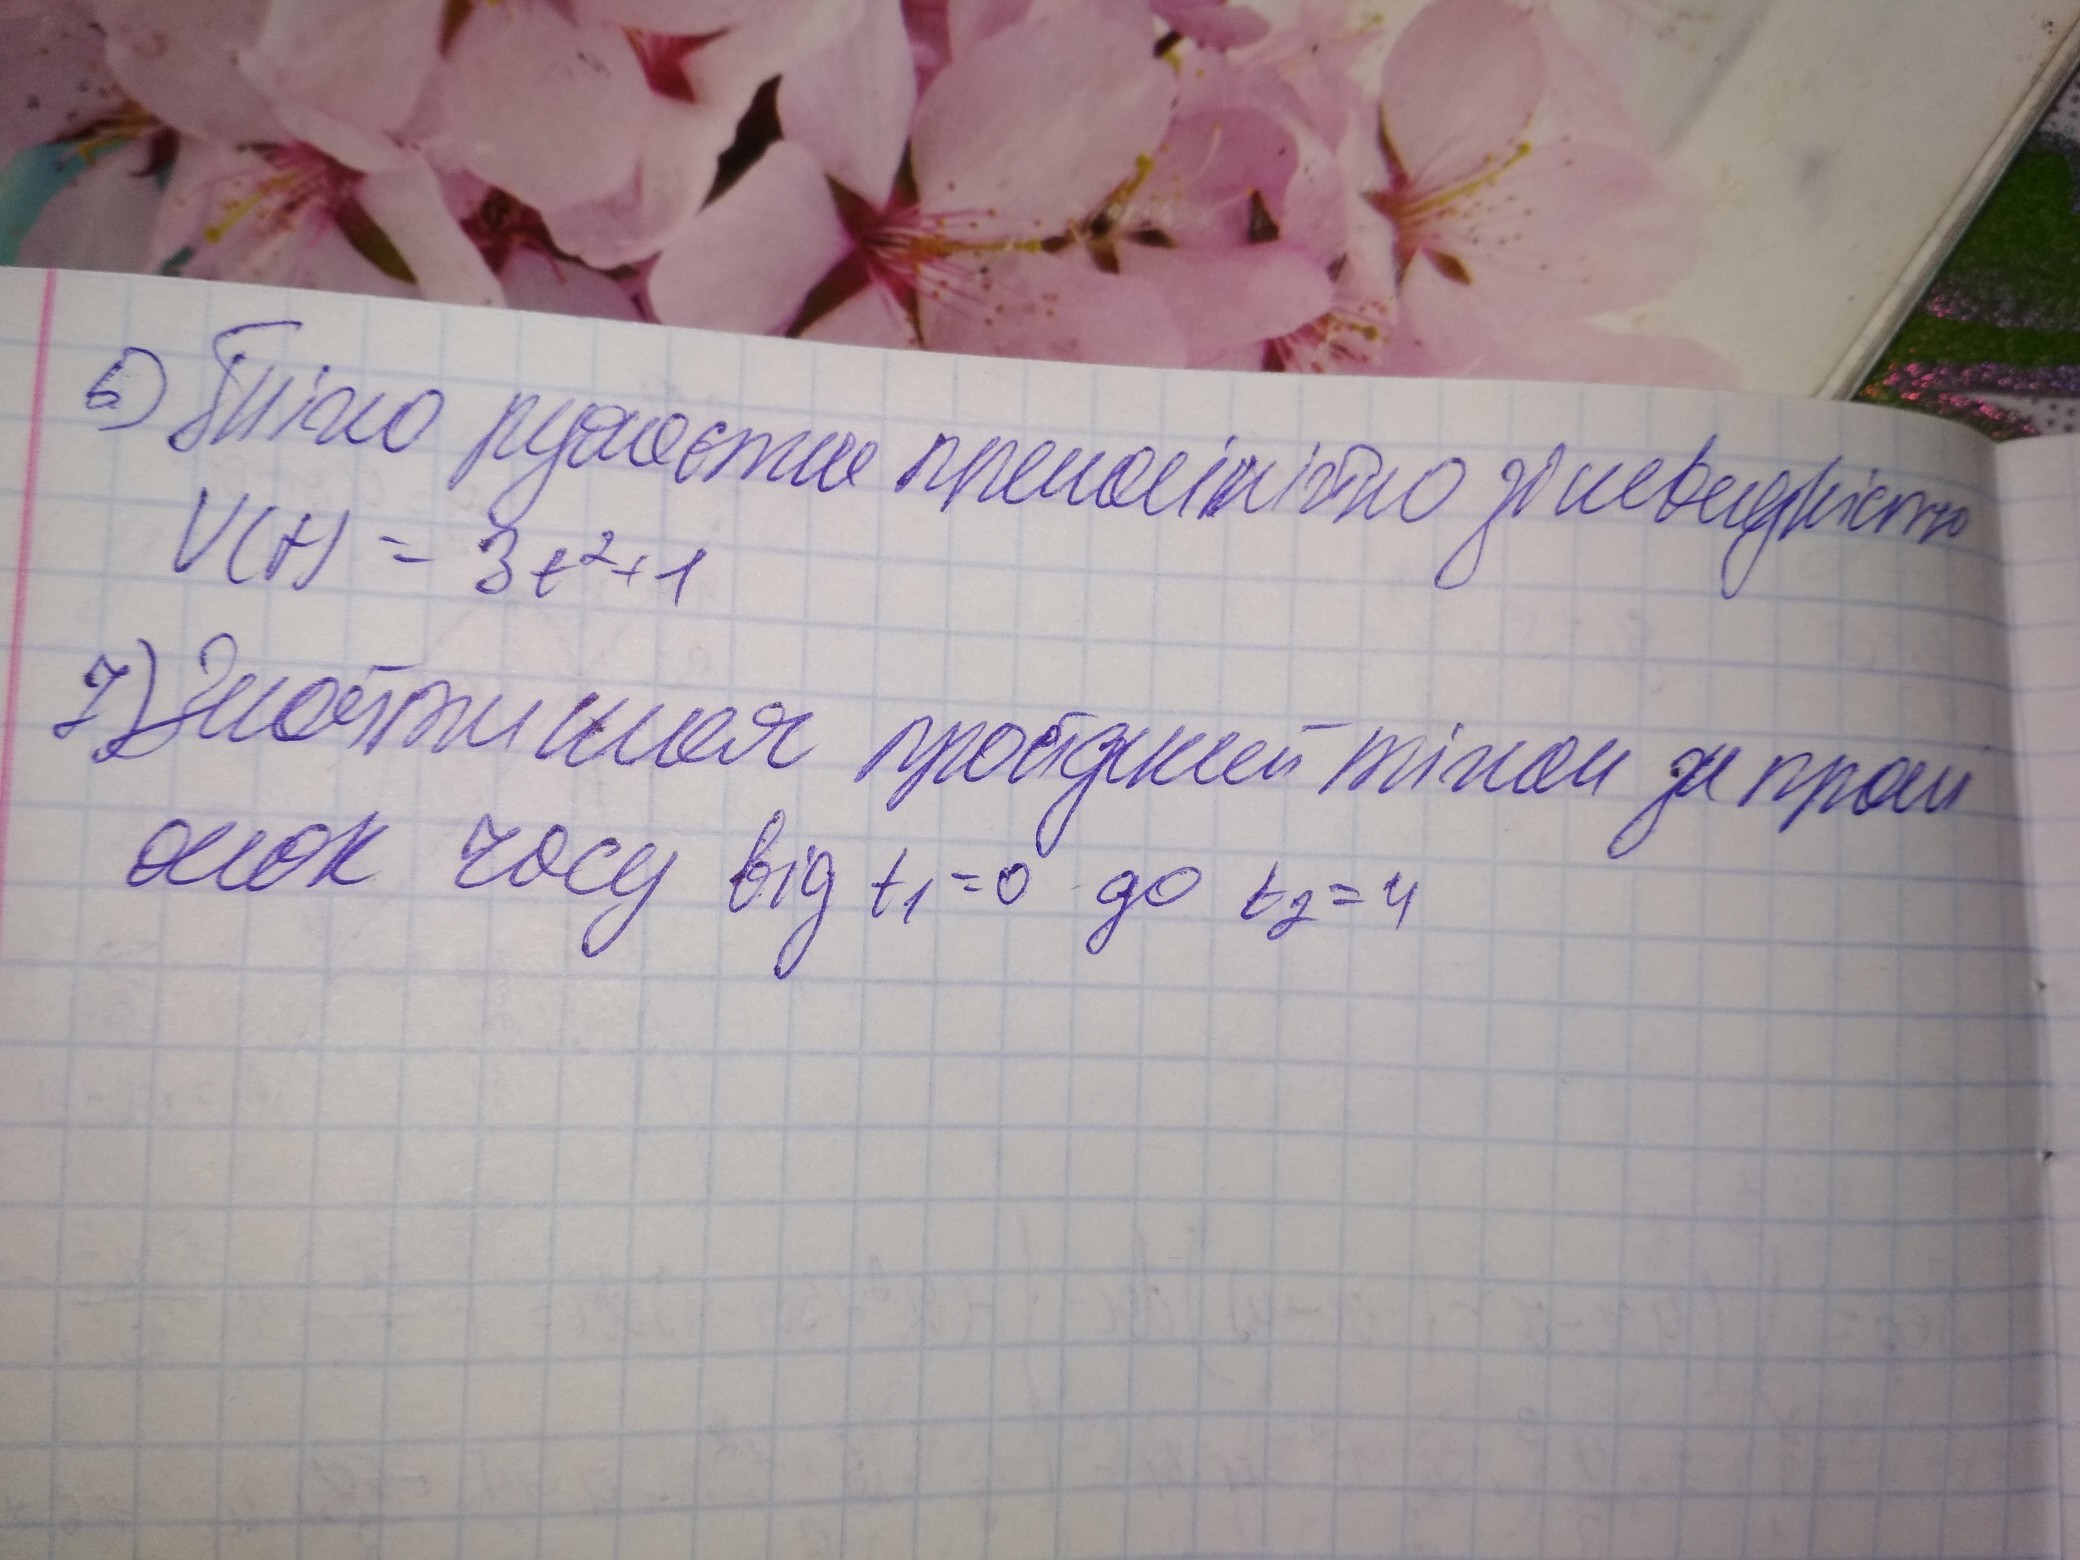 6) Тіло рухається прямолінійно зі швидкістю
V(t) = 3t²+1
7) Знайти шлях пройдений тілом за пром
іжок часу від t₁=0 до t₂=4